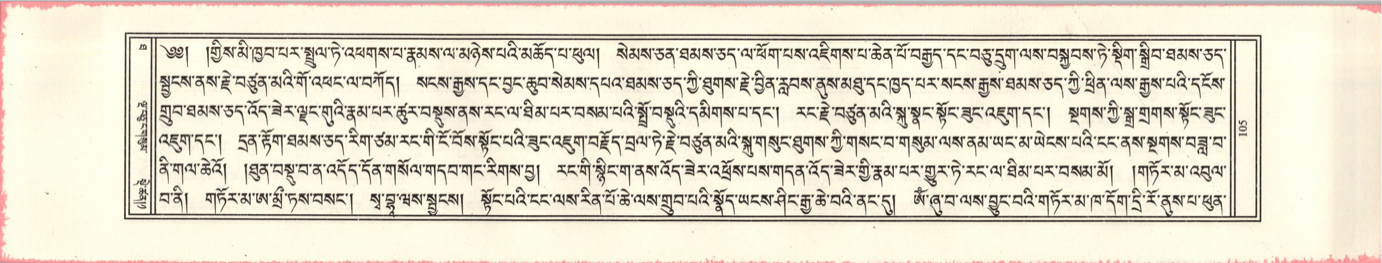 ༄༅། །གྱིས་མི་ཁྱབ་པར་སྤྲུལ་ཏེ་འཕགས་པ་རྣམས་ལ་མཉེས་པའི་མཆོད་པ་ཕུལ། སེམས་ཅན་ཐམས་ཅད་ལ་ཕོག་པས་འཇིགས་པ་ཆེན་པོ་བརྒྱད་དང་བཅུ་དྲུག་ལས་བསྐྱབས་ཏེ་སྡིག་སྒྲིབ་ཐམས་ཅད་
སྦྱངས་ནས་རྗེ་བཙུན་མའི་གོ་འཕང་ལ་བཀོད། སངས་རྒྱས་དང་བྱང་ཆུབ་སེམས་དཔའ་ཐམས་ཅད་ཀྱི་ཐུགས་རྗེ་བྱིན་རླབས་ནུས་མཐུ་དང་ཁྱད་པར་སངས་རྒྱས་ཐམས་ཅད་ཀྱི་ཕྲིན་ལས་རྒྱས་པའི་དངོས་
གྲུབ་ཐམས་ཅད་འོད་ཟེར་ལྗང་གུའི་རྣམ་པར་ཚུར་བསྡུས་ནས་རང་ལ་ཐིམ་པར་བསམ་པའི་སྤྲོ་བསྡུའི་དམིགས་པ་དང༌། རང་རྗེ་བཙུན་མའི་སྐུ་སྣང་སྟོང་ཟུང་འཇུག་དང༌། སྔགས་ཀྱི་སྒྲ་གྲགས་སྟོང་ཟུང་
འཇུག་དང༌། དྲན་རྟོག་ཐམས་ཅད་རིག་ཙམ་རང་གི་ངོ་བོས་སྟོང་པའི་ཟུང་འཇུག་བརྗོད་བྲལ་ཏེ་རྗེ་བཙུན་མའི་སྐུ་གསུང་ཐུགས་ཀྱི་གསང་བ་གསུམ་ལས་ནམ་ཡང་མ་ཡེངས་པའི་ངང་ནས་སྔགས་བཟླ་བ་
ནི་གལ་ཆེའོ། །ཐུན་བསྡུ་བ་ན་འདོད་དོན་གསོལ་གདབ་གང་རིགས་བྱ། རང་གི་སྙིང་ག་ནས་འོད་ཟེར་འཕྲོས་པས་གདན་འོད་ཟེར་གྱི་རྣམ་པར་གྱུར་ཏེ་རང་ལ་ཐིམ་པར་བསམ་མོ། །གཏོར་མ་འབུལ་
བ་ནི། གཏོར་མ་ཨ་མྲྀ་ཏས་བསང༌། སྭ་བྷཱ་ཝས་སྦྱངས། སྟོང་པའི་ངང་ལས་རིན་པོ་ཆེ་ལས་གྲུབ་པའི་སྣོད་ཡངས་ཤིང་རྒྱ་ཆེ་བའི་ནང་དུ། ཨོཾ་ཞུ་བ་ལས་བྱུང་བའི་གཏོར་མ་ཁ་དོག་དྲི་རོ་ནུས་པ་ཕུན་
105